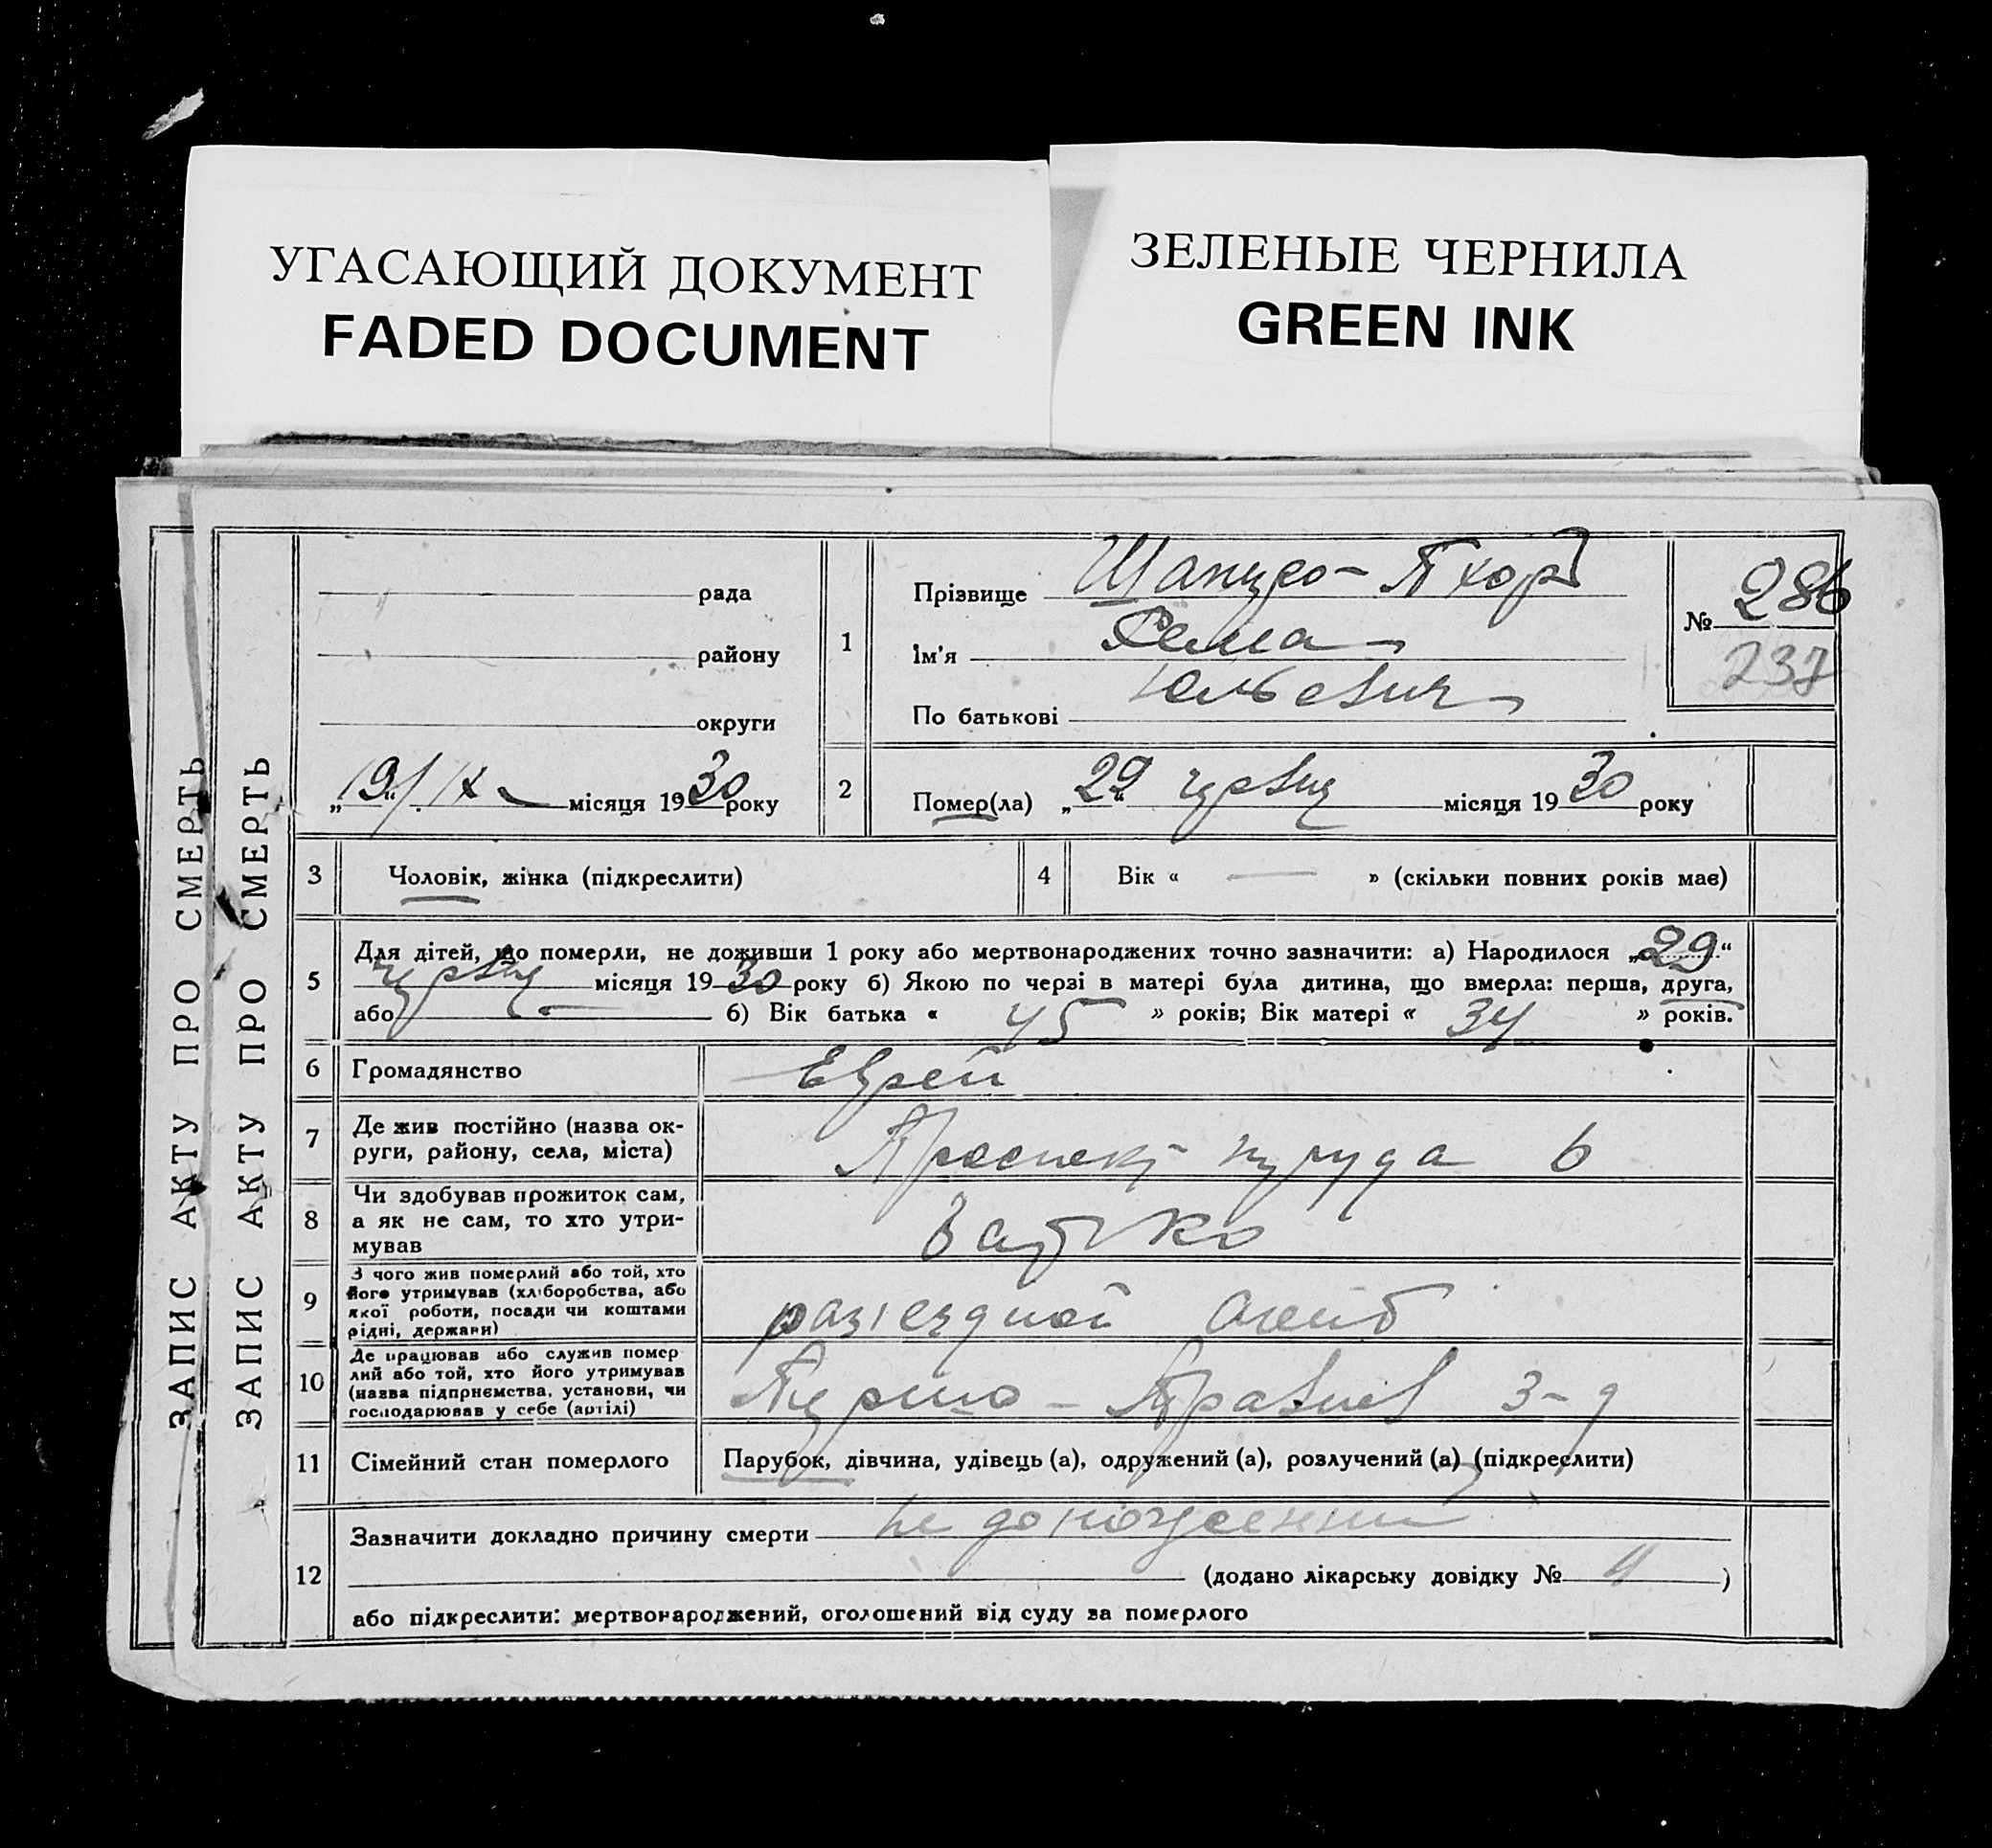 УГАСАЮЩИЙ ДОКУМЕНТ
FADED DOCUMENT
ЗЕЛЕНЫЕ ЧЕРНИЛА
GREEN INK
ЗАПИС АКТУ ПРО СМЕРТЬ
ЗАПИС АКТУ ПРО СМЕРТЬ
рада
району
округи
„19“/IX місяця 1930 року
1
Прізвище Шапиро-
Ім'я Сема
По батькові Юльевич
№ 286
237
2
Помер(ла) „29“ червня місяця 1930 року
3
Чоловік, жінка (підкреслити)
4
Вік « — » (скільки повних років має)
5
Для дітей, що померли, не доживши 1 року або мертвонароджених точно зазначити: а) Народилося „29“
червня місяця 1930 року б) Якою по черзі в матері була дитина, що вмерла: перша, друга,
або б) Вік батька « 45 » років; Вік матері « 34 » років.
6
Громадянство
Еврей
7
Де жив постійно (назва ок-
руги, району, села, міста)
Проспект 6
8
Чи здобував прожиток сам,
а як не сам, то хто утри-
мував
Батько
9
З чого жив померлий або той, хто
його утримував (хліборобства, або
якої роботи, посади чи коштами
рідні, держави)
разъездной агент
10
Де працював або служив помер
лий або той, хто його утримував
(назва підприємства, установи, чи
господарював у себе (артілі)
3-д
11
Сімейний стан померлого
Парубок, дівчина, удівець (а), одружений (а), розлучений (а) (підкреслити)
12
Зазначити докладно причину смерти недоношенний
(додано лікарську довідку № )
або підкреслити: мертвонароджений, оголошений від суду за померлого